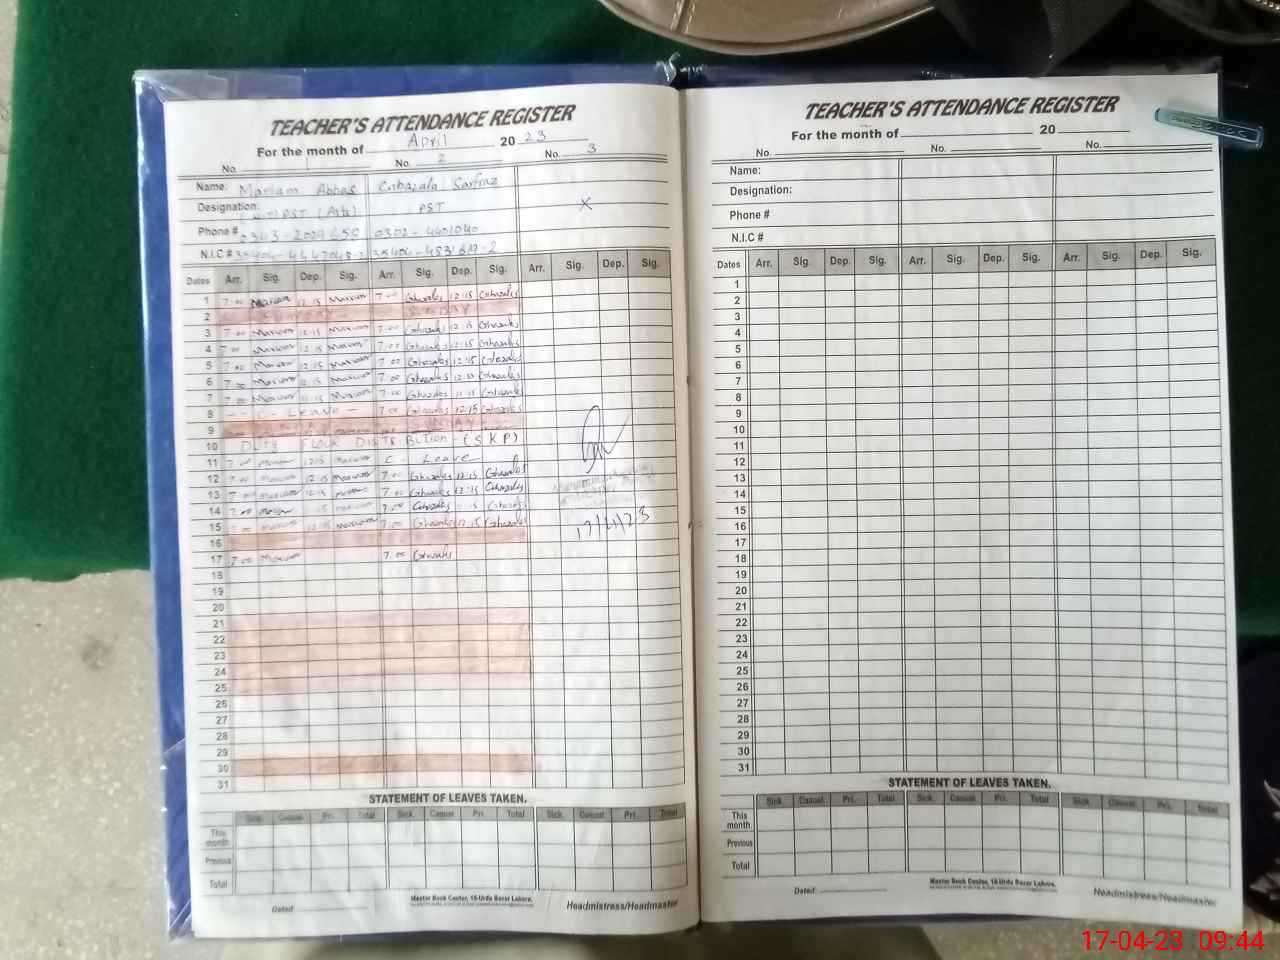 TEACHER'S ATTENDANCE REGISTER
For the month of April 20 23
No. No. 2 No. 3
Name: Mariam Abbas Sarfraz
Designation: PST (Arts) PST X
Phone # 0302-4401040
N.I.C #
Dates Arr. Sig. Dep. Sig. Arr. Sig. Dep. Sig. Arr. Sig. Dep. Sig.
1 7:00 Mariam 12:15 Mariam 7:00 Ghazala 12:15 Ghazala
2 SUNDAY SUNDAY
3 7:00 Mariam 12:15 Mariam 7:00 Ghazala 12:15 Ghazala
4 7:00 Mariam 12:15 Mariam 7:00 Ghazala 12:15 Ghazala
5 7:00 Mariam 12:15 Mariam 7:00 Ghazala 12:15 Ghazala
6 7:00 Mariam 12:15 Mariam 7:00 Ghazala 12:15 Ghazala
7 7:00 Mariam 11:15 Mariam 7:00 Ghazala 11:15 Ghazala
8 - C - Leave - 7:00 Ghazala 12:15 Ghazala
9 SUNDAY
10 Duty (SKP)
11 7:00 Mariam 12:15 Mariam C - Leave
12 7:00 Mariam 12:15 Mariam 7:00 Ghazala 12:15 Ghazala
13 7:00 Mariam 12:15 Mariam 7:00 Ghazala 12:15 Ghazala
14 7:00 Mariam Mariam 7:00 Ghazala Ghazala
15 7:00 Mariam 12:15 Mariam 7:00 Ghazala 12:15 Ghazala
17/4/23
16
17 7:00 Mariam 7:00 Ghazala
18
19
20
21
22
23
24
25
26
27
28
29
30
31
STATEMENT OF LEAVES TAKEN.
Sick Casual Pri. Total Sick Casual Pri. Total Sick Casual Pri. Total
This month
Previous
Total
Master Book Center, 16-Urdu Bazar Lahore.
Dated: Headmistress/Headmaster
TEACHER'S ATTENDANCE REGISTER
For the month of 20
No. No. No.
Name:
Designation:
Phone #
N.I.C #
Dates Arr. Sig. Dep. Sig. Arr. Sig. Dep. Sig. Arr. Sig. Dep. Sig.
1
2
3
4
5
6
7
8
9
10
11
12
13
14
15
16
17
18
19
20
21
22
23
24
25
26
27
28
29
30
31
STATEMENT OF LEAVES TAKEN.
Sick Casual Pri. Total Sick Casual Pri. Total Sick Casual Pri. Total
This month
Previous
Total
Master Book Center, 16-Urdu Bazar Lahore.
Dated: Headmistress/Headmaster
17-04-23 09:44